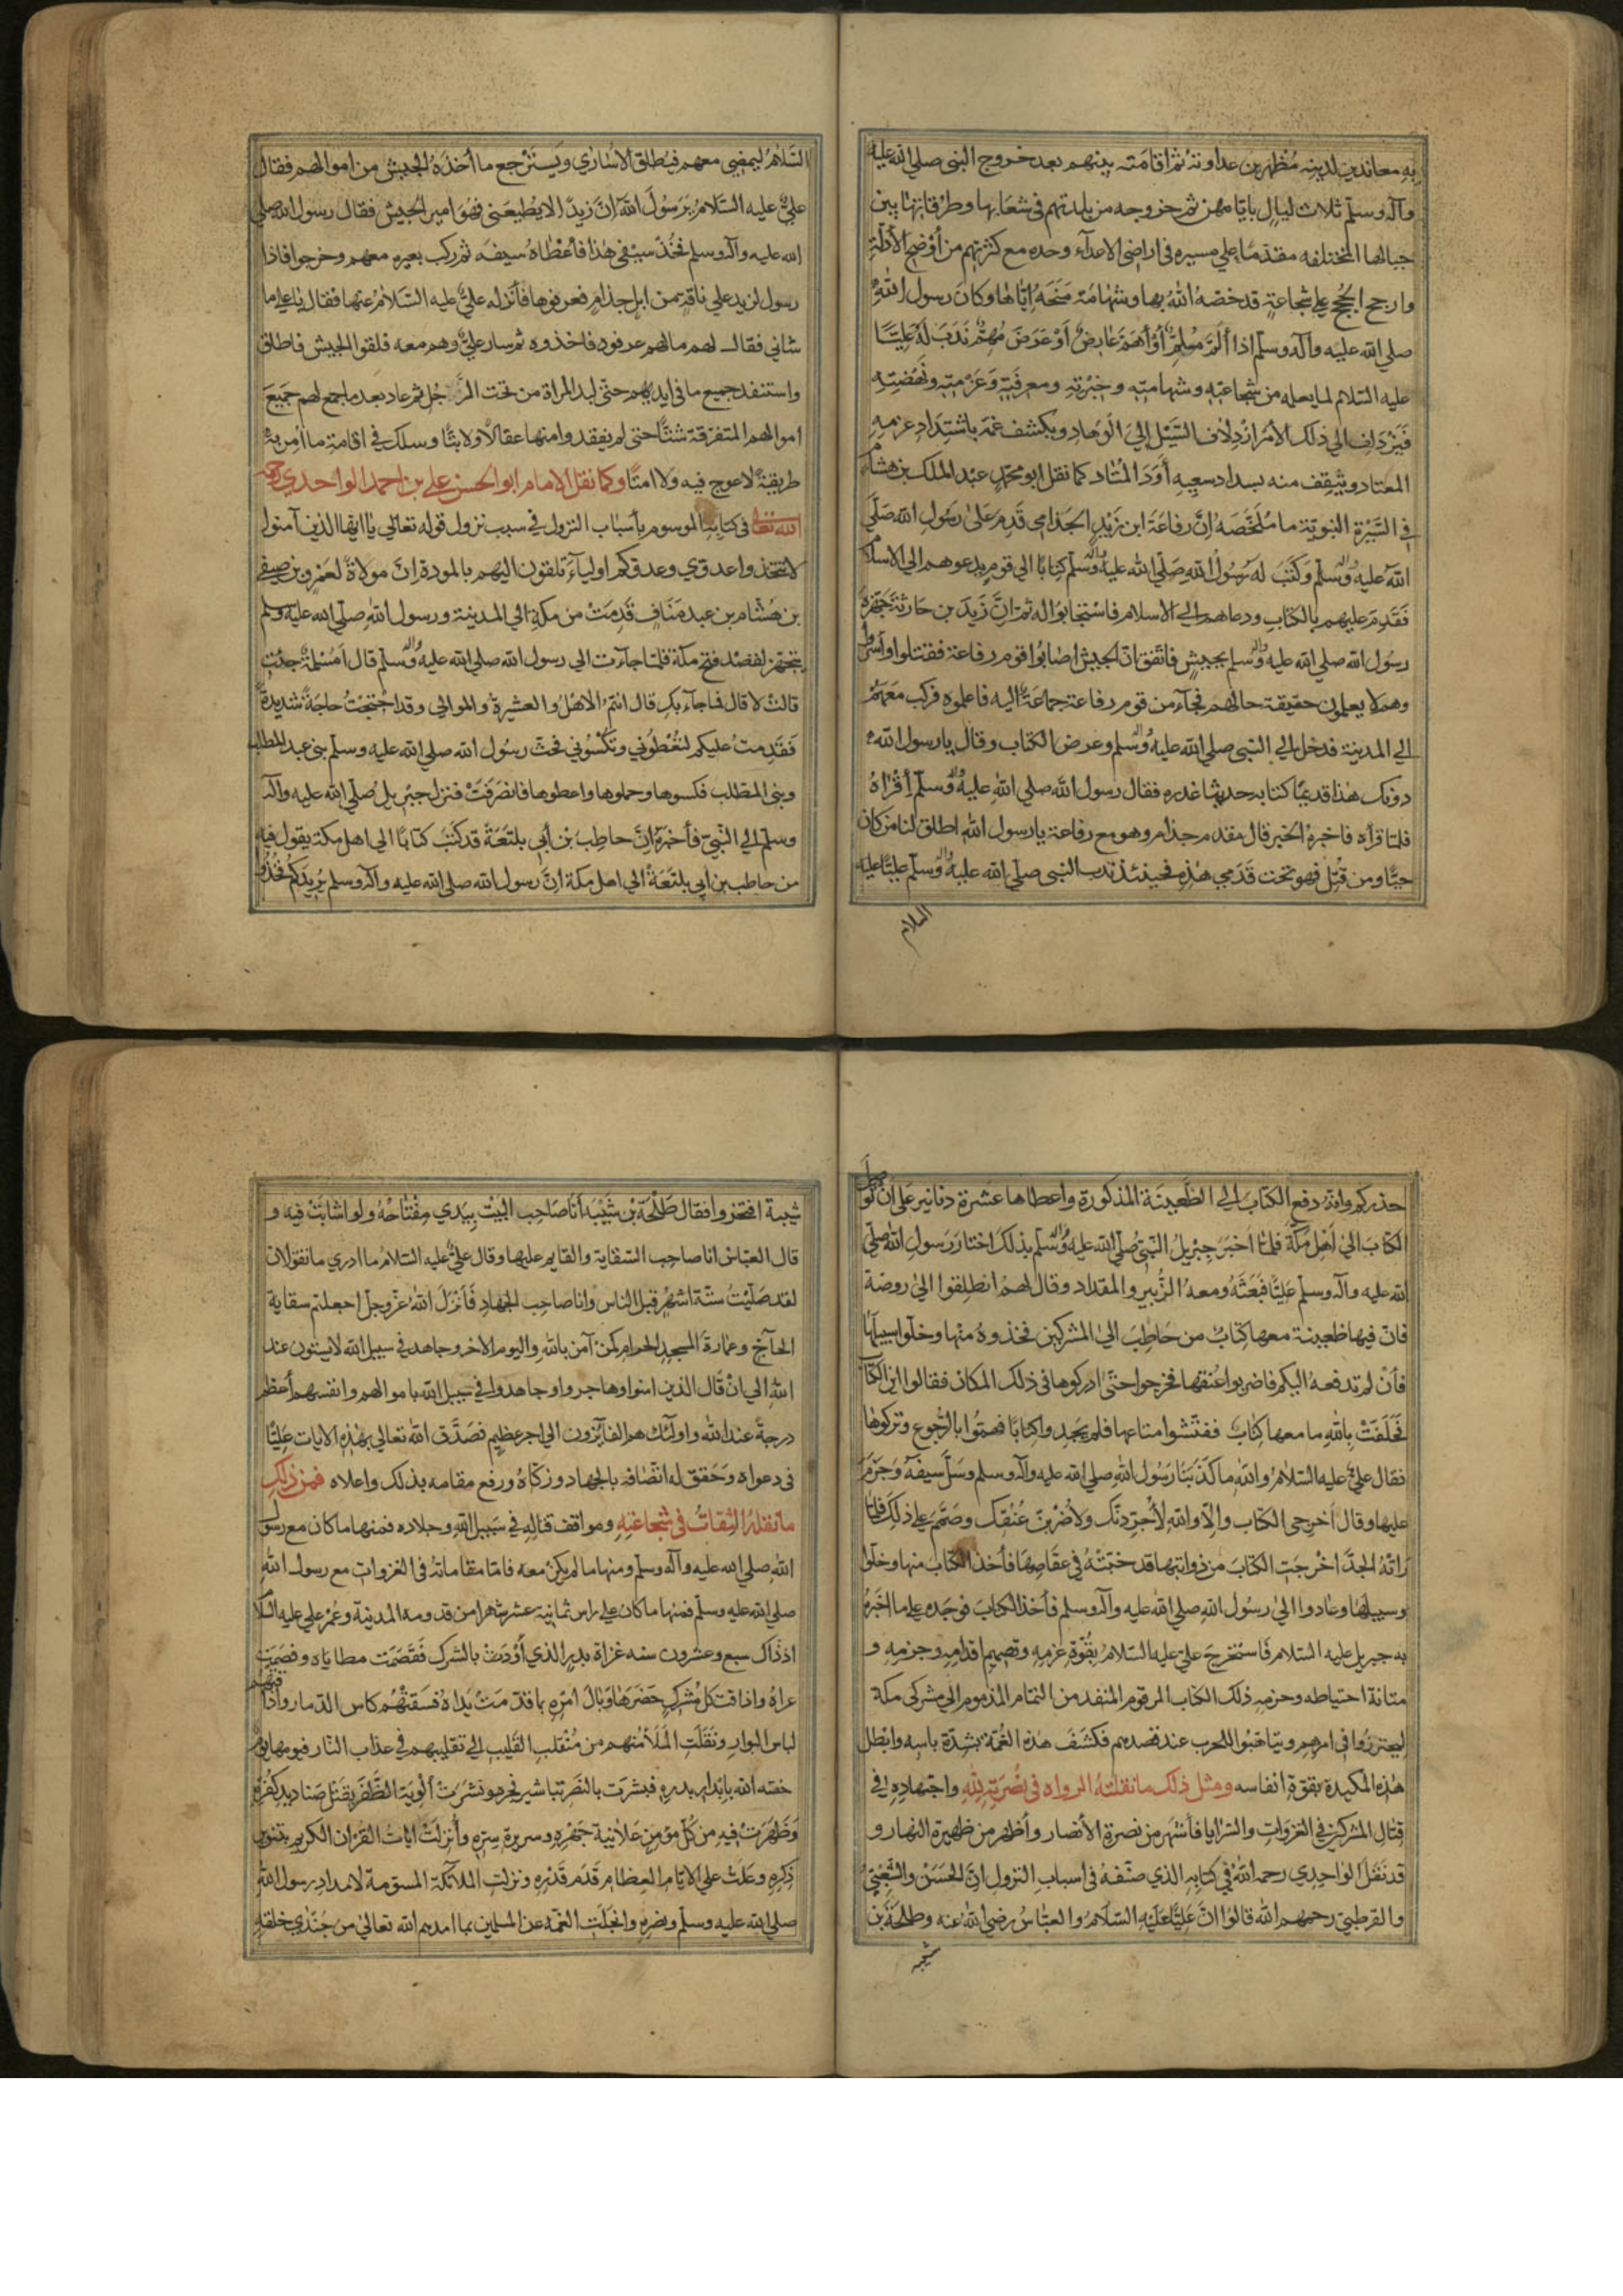 به معاندين لدينه مُظهرين عداوته ثم اقامته بينهم بعد خروج النبى صلي الله عليه
وآله وسلم ثلاث ليالٍ بايامهن ثم خروجه من بلدتهم فى شعابها وطرقاتها بين
جبالها المختلفه مقدمًا علي مسيره فى اراضى الاعدآء وحده مع كثرتهم من أوضح الأدلة
وارجح الحجج علي شجاعةٍ قد خصّه اللهُ بها وشهامة مَنَحَهُ إيّاها وكانَ رسول اللهِ
صلي الله عليه وآله وسلم اذا ألَمّ مُلِمٌّ أوْ أهَمّ عارضٌ أوْ عَرَضَ مُهِمٌّ نَدَبَ لَهُ عَلِيًّا
عليه السلام لما يعلم من شجاعته وشهامته وخبرته ومعرفته وعَزْمته ونَهضته
فَيَزدلف الي ذلك الأمْر ازْدِلاف السّيْل إليَ الوهاد ويكشف غمه باشتداد عزمهِ
المعتاد ويثقف منه بسداد سعيه أَوَدَ المُناد كما نقل ابو محمدٍ عبْد الملك بن هشام
فى السّيْرة النبوية ما مُلخّصَه إنّ رفاعَةَ ابن زَيْدٍ الجذامى قَدِمَ علىٰ رَسُولِ الله صَلّي
اللهُ عليه وآله وسلم وكَتَبَ لهُ رسُولُ اللهِ صَلّي الله عليه وآله وسلم كتابًا الي قومه يدعوهم الي الاسلام
فَقَدِمَ عليهم بالكتابِ ودعاهم الي الاسلام فاسْتجابُوا له ثم انّ زَيدَ بن حارثة جَهّزهُ
رسُول الله صلي الله عليه وآله وسلم بجيشٍ فاتّفق انّ الجيش اصابُوا قوم رفاعة فقتلوا واسروا
وهم لا يعلمون حقيقة حالهم فجآء من قوم رفاعة جماعَةٌ اليه فاعلموه فركب مَعَهُمْ
الي المدينة فدخل الي النبى صلي الله عليه وآله وسلم وعرض الكتاب وقال يا رسول الله
دونك هذا قديمًا كتابه حديثا غدره فقال رسول اللهِ صلي اللهِ عليه وآله وسلم أقْرَاهُ
فلمّا قرأه فاخبرهُ الخبر قال مقدم جذام وهو مع رفاعة يا رسول اللهِ اطلق لنا من كان
حيًّا ومن قُتِلَ فهو تحت قَدَمي هذه فحينئذ ندب النبى صلي الله عليه وآله وسلم عليًّا عليه
السلام
السّلامُ ليمضى معهم فيُطلق الأسارٰي ويسترجع ما أخذَهُ الجيش من اموالهم فقال
علىٌّ عليه السّلامُ يَرسُولَ اللهِ إنّ زيدًا لا يُطيعنى فهُوَ امير الجيش فقال رسول الله صلي
الله عليه وآله وسلم فخُذْ سيْفى هٰذا فأعْطاهُ سيفَه ثم ركب بعيره معهم وخرجوا فاذا
رسول لزيد علي ناقةٍ من ابل جذام فعرفوها فأنزله علىٌّ عليه السّلامُ عنها فقال يا علي ما
شانى فقال لهم مالهم عرفوه فاخذوه ثم سار علىٌّ وهم معه فلقوا الجيش فاطلق
واستنفد جميع ما فى ايديهم حتّى لبد المراة من تحت الرّجُل ثم عاد بعد ما جمع لهم جَميعَ
اموالهم المتفرقة شتّا حتى لم يفقدوا منها عقالًا ولا بتًّا وسلك في اقامة ما أمر به
طريقةً لا عوج فيه ولا امتًا وكما نقل الامام ابو الحسن علي بن احمد الواحدي رحمه
الله تعالى فى كتابه الموسوم بأسباب النزول في سبب نزول قوله تعالى يا ايها الذين آمنوا
لا تتخذوا عدوّي وعدوّكم اوليآءَ تلقون اليهم بالمودة إنّ مولاةً لعمرو بن صيفى
بن هشام بن عبد مَنَافٍ قَدِمَتْ من مكة الي المدينة ورسول اللهِ صلّي الله عليه وسلم
يتجهّز لفصْد فتح مكّة فلمّا جآءت الي رسول الله صلي الله عليه وآله وسلم قال أمُسْلِمةً جئتِ
قالتْ لا قال فما جآء بكِ قال انتمُ الاهْلُ والعشيرةُ والموالي وقد احتجْتُ حاجةً شديدةً
فَقَدِمتُ عليكم لتُعْطُوني وتَكْسُوني فحثّ رسُول الله صلي الله عليه وسلم بنى عبد المطلب
وبنى المطّلب فكسوها وحملوها واعطوها فانصَرَفَتْ فنزل جبريلُ صلّي الله عليه وآله
وسلم الي النّبيّ فأخبَرَهُ إنّ حاطِبَ بن أبى بلتعَةَ قد كتبَ كتابًا الي اهل مكة يقول فيه
من حاطب بن ابى بلتعَةَ الي اهل مكة انّ رسول الله صلى الله عليه وآله وسلم يُريدَكُم فخُذُوا
حذركم وانهُ دفع الكتابَ الى الظّعِينَة المذكورة واعطاها عشرة دنانير عَلى انْ توصل
الكتابَ الىٰ اهْل مكّةَ فلمّا اخبَرَ جِبْريلُ النبيّ صلّي الله عليه وآله وسلم بذلك اختار رسولِ اللهِ صلّي
الله عليه وآله وسلم عَلِيًّا فبَعَثَهُ ومعهُ الزُّبير والمقداد وقال لهمُ انطلقوا الىٰ روضة
فانّ فيها ظعينة معها كِتابٌ من حَاطبَ الىٰ المشركين فخذوهُ منها وخلّوا سبيلَها
فأنْ لم تدفعهُ اليكم فاضربوا عُنقها فخرجوا حتّى ادركوها فى ذلك المكان فقالوا اين الكتاب
فَحَلَفَتْ باللهِ ما معها كتابٌ ففتّشوا متاعها فلم يَجدوا كِتابًا فهمّوا بالرّجوع وتركوها
فقال علىٌّ عليه السّلامُ واللهِ ما كذبَنا رَسُول اللهِ صلي الله عليه وآله وسلم وسَلّ سيفَهُ وجَزَمَ
عليها وقال أخرجى الكتاب وإلّا واللهِ لأجَرّدنّكِ ولأضْربنّ عُنُقكِ وصَمّم علي ذلك فلمّا
رأتْهُ الجدّ اخرجَتِ الكتابَ من ذوابتها قد خبّتْهُ فى عقاصها فأخذ الكتاب منها وخلّوا
وسبيلها وعادوا الىٰ رسُول اللهِ صلي الله عليه وآله وسلم فأخذ الكتابَ فوجَده علي ما اخبرهُ
به جبريل عليه السّلام فاستخرج علىّ عليه السّلامُ بقُوّةِ عزمهِ وتصميم اقدامه وجزمهِ و
متانة احتياطه وحزمهِ ذلك الكتاب المرقوم المنفد من النمّام المذموم الي مشركى مكة
ليحترزُوا فى امرهم ويتاهّبُوا للحرب عند قصدهم فكشَفَ هذه الغُمّة بشدّة باسه وابطل
هذه المكيدة بقوّة انفاسه ومثل ذلك ما نقلتهُ الرواه فى نُصْرَتِه للهِ واجتهادِه فى
قتال المشركين في الغزوات والسّرايا فأشهر من نصرة الأنصار وأظهر من ظهيرة النهار و
قد نقلَ الواحدي رحمه اللهُ في كتابه الذي صنّفهُ فى اسباب النزول انّ الحسَنْ والشّعْبيّ
والقرطبىّ رحمهم الله قالوا انّ عَلِيًّا عَلَيْهِ السّلَامُ والعبّاسُ رضى الله عنه وطلحَةَ بْن
شيبة
شيبة افتخروا فقال طَلْحَة بْن شَيْبَه أنَا صَاحِب البَيْت بِيَدي مِفْتَاحُهُ ولو اشا بَتّ فيه و
قال العبّاس انا صاحب السّقاية والقايم عليها وقال علىٌّ عليه السّلامُ ما ادري ما تقولان
لقد صلّيْتُ ستّة اشهُر قبل الناس وانا صاحب الجهادِ فَأنزلَ اللهُ عزّ وجلّ اجعلتم سقاية
الحآجّ وعمارةَ المسجدِ الحرامِ كمن آمن باللهِ واليوم الآخر وجاهد في سبيل الله لا يستوون عند
اللهِ الي انْ قال الذين امنوا وهاجروا وجاهدوا في سبيل الله باموالهم وانفسهم أعظم
درجةً عند الله واولٰئك هم الفآئزون الي اجر عظيم فصَدّق الله تعالي بهٰذه الايات عَلِيًّا
فى دعواه وحَقّق له اتّصافه بالجهاد وزكّاهُ ورفع مقامه بذلك واعلاه فمن ذلكِ
ما نقلهُ الثّقاتُ فى شجاعتهِ ومواقف قتاله فى سبيل اللهِ وجلاده فمنها ما كان مع رسول
اللهِ صلى الله عليه وآله وسلم ومنها ما لم يكنْ معه فامّا مقاماتهُ فى الغزوات مع رسول اللهِ
صلي الله عليه وسلّم فمنها ما كان علي راس ثمانية عشر شهرا من قدومه المدينة وعُمْر علي عليه السلام
اذ ذاك سبع وعشرون سنه غزاة بدرٍ الذي أوْدَتْ بالشرك فقصَمَت مطاياه وفصَمَتْ
عراهُ واذاقت كلّ مُشركٍ حَضَرَها وَبَالَ امْرِه بما قدّمَتْ يَداهُ فسَقَتْهُم كاس الدمار واذاقتهم
لباس البوار ونَقَلَتِ المَلأ منهم من مُنْقلبِ القَليب الي تقليبهم فى عذاب النّار فيومها يومٌ
خصّه الله بابْدار بدره فبشّرَت بالنّصْر تباشير فجره ونَشَرَتْ ألْويَة الظّفَر بقَتْل صناديد كفره
وَظهَرَتْ فيه من كُلّ مؤمنٍ عَلانية جَهْرِهِ وسريرة سِرّه وأُنزلَتْ اياتُ القُرْان الكريم بتنويه
ذِكره وعَلَتْ على الايّام العظام قَدَم قَدْرِه ونزلتِ الملآئكة المسوّمة لامداد رسول اللهِ
صلي الله عليه وسلّم ونصْره وانجلَتِ الغمّة عن المسلمين بما امدهم الله تعالىٰ من جُنْدي خلقهِ